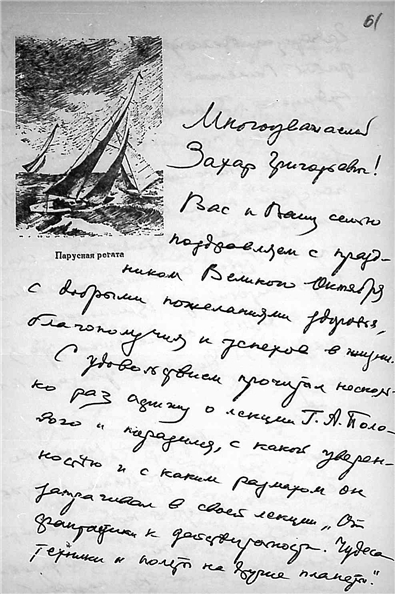 61
Многоуважаемый
Захар Григорьевич!
Парусная регата
Вас и Вашу семью
поздравляем с празд-
ником Великого Октября
с добрыми пожеланиями здоровья,
благополучия и успехов в жизни.
С удовольствием прочитал несколь-
ко раз о лекции Г. А. Поло-
вого и поразился, с какой уверен-
ностью и с каким размахом он
затрагивал в своей лекции „От
фантастики к действительности. Чудеса
техники и полёты на другие планеты".